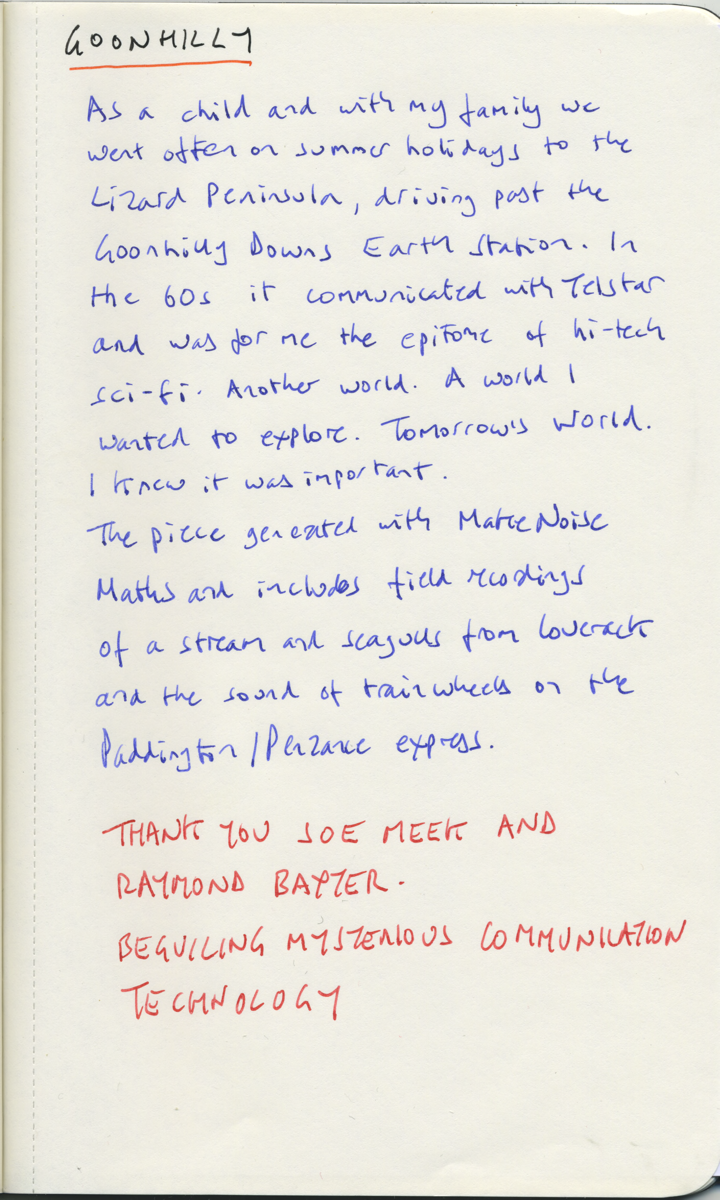 GOONHILLY
As a child and with my family we
went often on summer holidays to the
Lizard Peninsula, driving past the
Goonhilly Downs Earth Station. In
the 60s it communicated with Telstar
and was for me the epitome of hi-tech
sci-fi. Another world. A world I
wanted to explore. Tomorrow's World.
I knew it was important.
The piece generated with Make Noise
Maths and includes field recodings
of a stream and seagulls from Coverack
and the sound of train wheels on the
Paddington/Penzance express.
THANK YOU JOE MEEK AND
RAYMOND BAXTER.
BEGUILING MYSTERIOUS COMMUNICATION
TECHNOLOGY